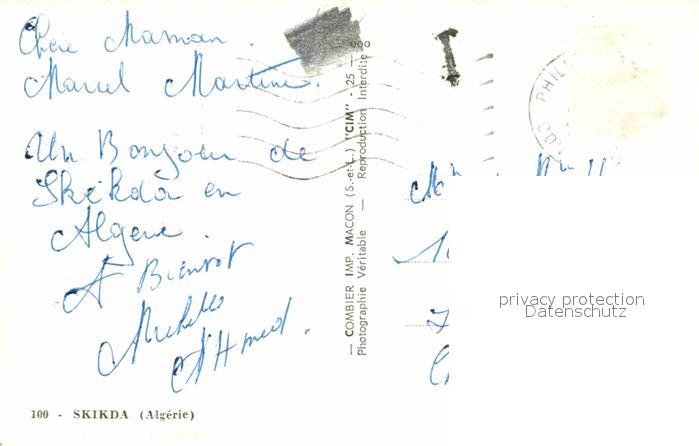 Chère Maman.
Marcel Martine.
Un Bonjour de
Skikda en
Algerie.
A Bientot
Michelle
AHmed.
100 - SKIKDA (Algérie)
— COMBIER IMP. MACON (S.-et-L.) "CIM" - 25 — 000
Photographie Véritable — Reproduction Interdite
PHILI
privacy protection
Datenschutz